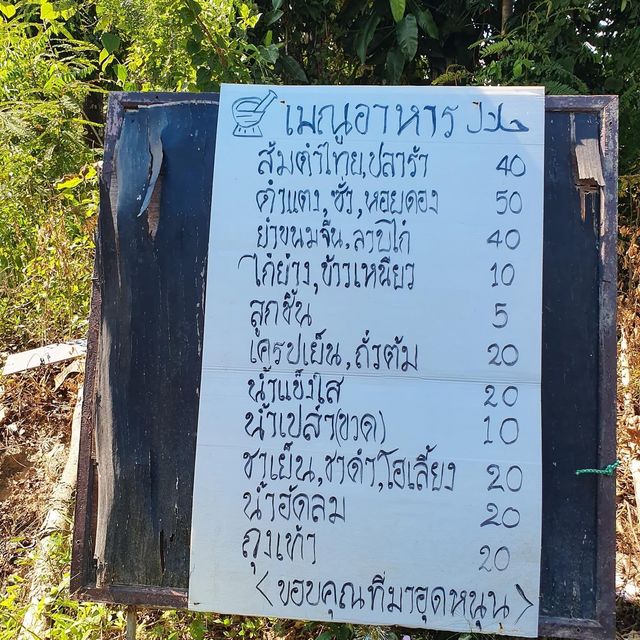 เมณูอาหาร
ส้มตำไทย,ปลาร้า 40
ตำแตง,ซั่ว,หอยดอง 50
ยำขนมจีน,ลาบไก่ 40
ไก่ย่าง,ข้าวเหนียว 10
ลูกชิ้น 5
เครปเย็น,ถั่วต้ม 20
น้ำแข็งใส 20
น้ำเปล่า(ขวด) 10
ชาเย็น,ชาดำ,โอเลี้ยง 20
น้ำอัดลม 20
ถุงเท้า 20
<ขอบคุณที่มาอุดหนุน>